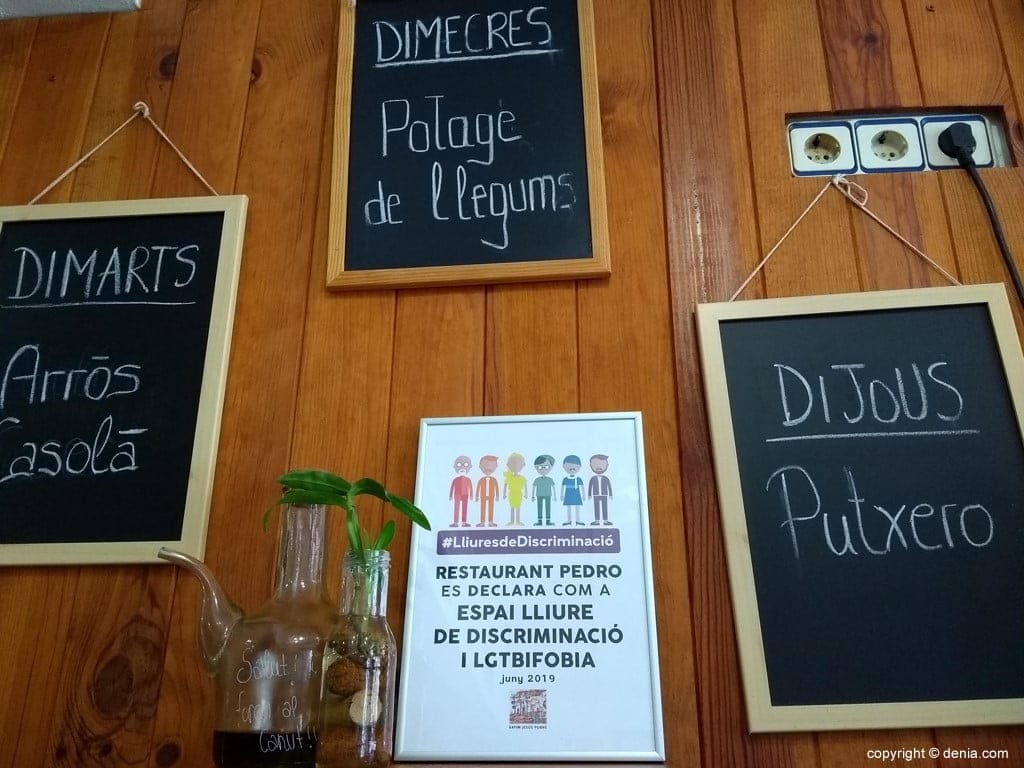 DIMARTS
Arrōs
Casolā
DIMECRES
Potagè
de llegums
DIJOUS
Putxero
#LliuresdeDiscriminació
RESTAURANT PEDRO
ES DECLARA COM A
ESPAI LLIURE
DE DISCRIMINACIÓ
I LGTBIFOBIA
juny 2019
XAFEM JESÚS POBRE
Salut! i
força al
Canut!!
copyright © denia.com